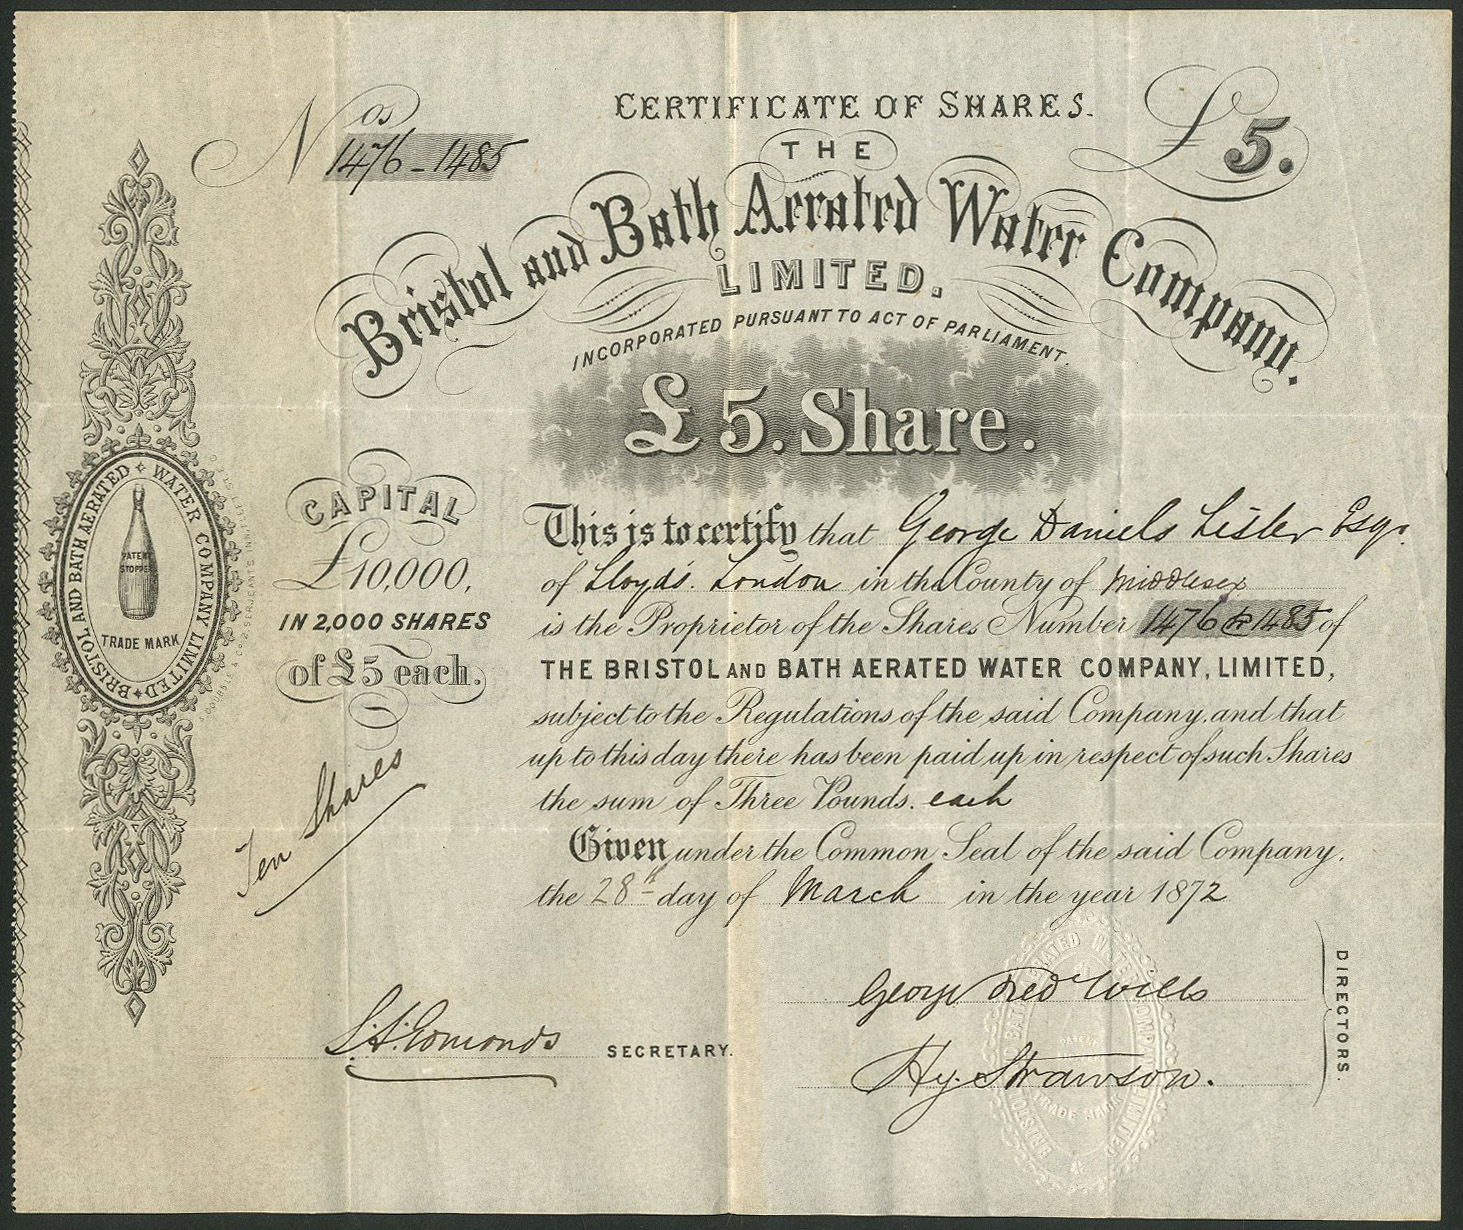 CERTIFICATE OF SHARES.
Nos 1476-1485
£5.
THE
Bristol and Bath Aerated Water Company.
LIMITED.
INCORPORATED PURSUANT TO ACT OF PARLIAMENT.
£5. Share.
CAPITAL
£10,000,
IN 2,000 SHARES
of £5 each.
Ten Shares
BRISTOL AND BATH AERATED WATER COMPANY LIMITED
PATENT
STOPPER
TRADE MARK
This is to certify that George Daniels Lister Esqr.
of Lloyd's. London in the County of Middlesex
is the Proprietor of the Shares Number 1476 to 1485 of
THE BRISTOL AND BATH AERATED WATER COMPANY, LIMITED,
subject to the Regulations of the said Company, and that
up to this day there has been paid up in respect of such Shares
the sum of Three Pounds. each
Given under the Common Seal of the said Company.
the 28th day of March in the year 1872
George Fredk Wills
Hy. Strawson.
DIRECTORS.
S.A. Edmonds SECRETARY.
TRADE MARK